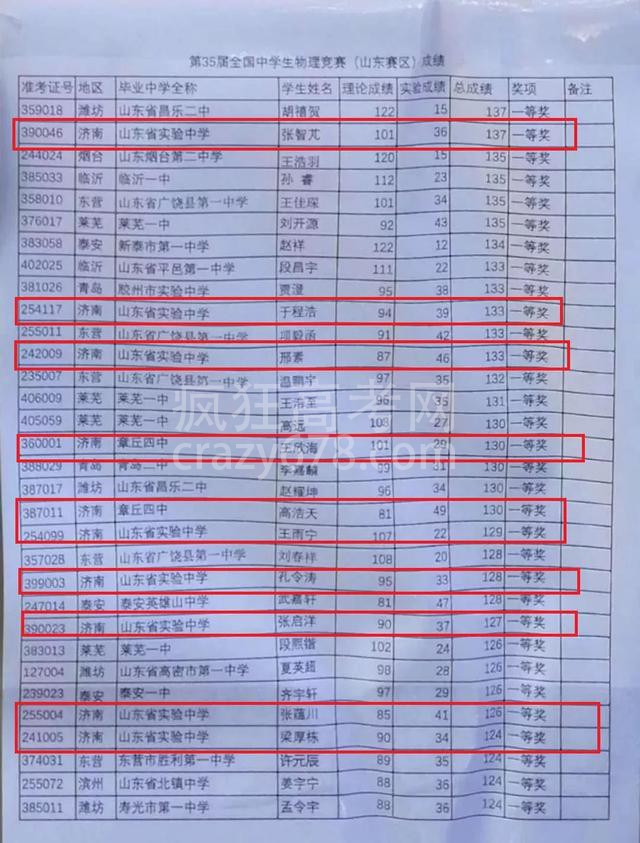 第35届全国中学生物理竞赛（山东赛区）成绩
准考证号 地区 毕业中学全称 学生姓名 理论成绩 实验成绩 总成绩 奖项 备注
359018 潍坊 山东省昌乐二中 胡禧贺 122 15 137 一等奖
390046 济南 山东省实验中学 张智芃 101 36 137 一等奖
244024 烟台 山东烟台第二中学 王浩羽 120 15 135 一等奖
385033 临沂 临沂一中 孙睿 112 23 135 一等奖
358010 东营 山东省广饶县第一中学 王佳琛 101 34 135 一等奖
376017 莱芜 莱芜一中 刘开源 92 43 135 一等奖
383058 泰安 新泰市第一中学 赵祥 122 12 134 一等奖
402025 临沂 山东省平邑第一中学 段昌宇 111 22 133 一等奖
381026 青岛 胶州市实验中学 贾澄 95 38 133 一等奖
254117 济南 山东省实验中学 于程浩 94 39 133 一等奖
255011 东营 山东省广饶县第一中学 项毅函 91 42 133 一等奖
242009 济南 山东省实验中学 邢素 87 46 133 一等奖
235007 东营 山东省广饶县第一中学 温鹏宇 97 35 132 一等奖
406009 莱芜 莱芜一中 王浩至 96 35 131 一等奖
405059 莱芜 莱芜一中 高远 103 27 130 一等奖
360001 济南 章丘四中 王欣海 101 29 130 一等奖
388029 青岛 青岛二中 李嘉麟 99 31 130 一等奖
387017 潍坊 山东省昌乐二中 赵耀坤 96 34 130 一等奖
387011 济南 章丘四中 高浩天 81 49 130 一等奖
254099 济南 山东省实验中学 王雨宁 107 22 129 一等奖
357028 东营 山东省广饶县第一中学 刘春祥 108 20 128 一等奖
399003 济南 山东省实验中学 孔令涛 95 33 128 一等奖
247014 泰安 泰安英雄山中学 武嘉轩 81 47 128 一等奖
390023 济南 山东省实验中学 张启洋 90 37 127 一等奖
383013 莱芜 莱芜一中 段熙锴 102 24 126 一等奖
127004 潍坊 山东省高密市第一中学 夏英超 98 28 126 一等奖
239023 泰安 泰安一中 齐宇轩 97 29 126 一等奖
255004 济南 山东省实验中学 张蕴川 85 41 126 一等奖
241005 济南 山东省实验中学 梁厚栋 90 34 124 一等奖
374031 东营 东营市胜利第一中学 许元辰 89 35 124 一等奖
255072 滨州 山东省北镇中学 姜宇宁 88 36 124 一等奖
385011 潍坊 寿光市第一中学 孟令宇 88 36 124 一等奖
疯狂高考网
crazy678.com